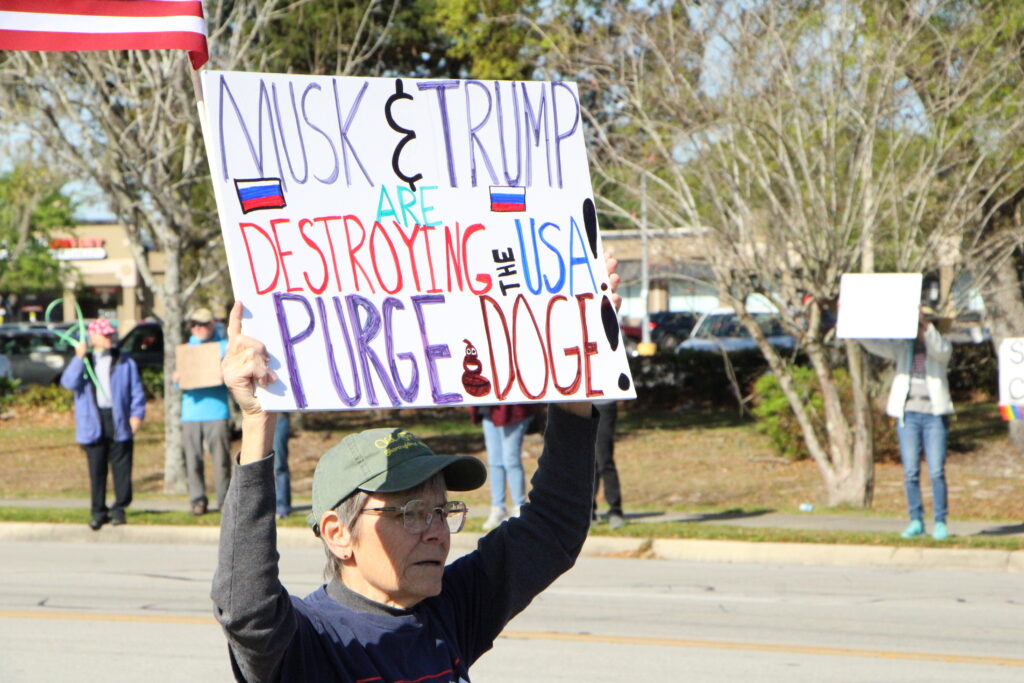 MUSK & TRUMP
ARE
DESTROYING THE USA!
PURGE DOGE!